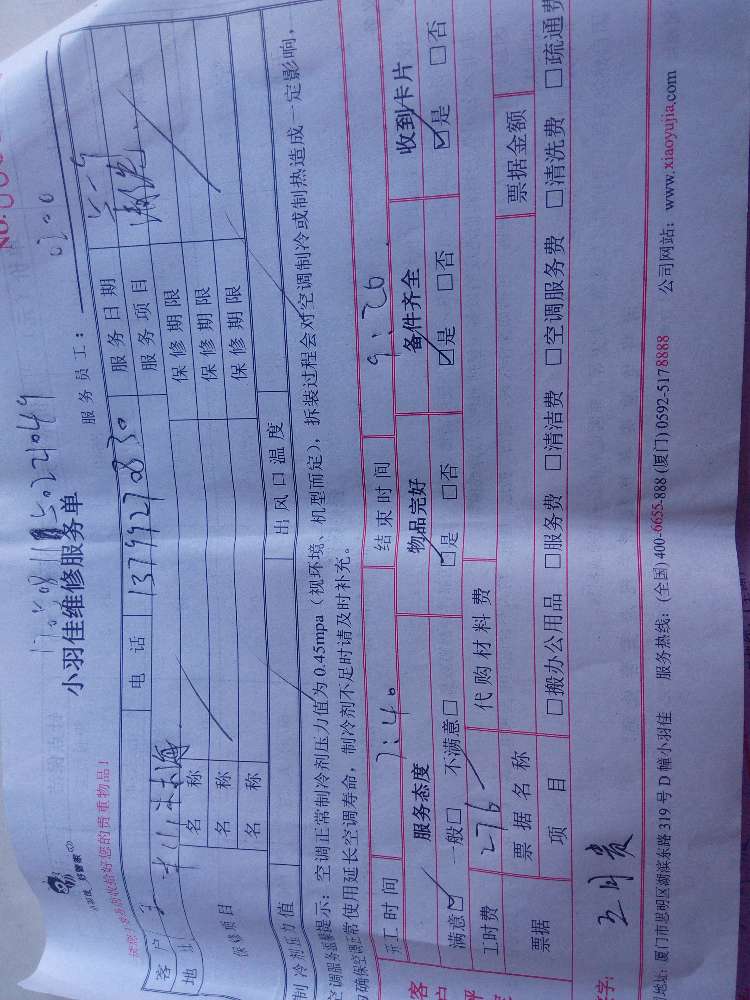 NO:
小羽佳维修服务单
服务员工：
客户
电话
13799270830
服务日期
地
服务项目
保修项目
名称
保修期限
名称
保修期限
名称
保修期限
制冷剂压力值
出风口温度
空调服务温馨提示：空调正常制冷剂压力值为0.45mpa（视环境、机型而定），拆装过程会对空调制冷或制热造成一定影响，
为确保空调正常使用延长空调寿命，制冷剂不足时请及时补充。
开工时间
7:40
结束时间
9:26
客户
服务态度
物品完好
备件齐全
收到卡片
满意☑ 一般□ 不满意□
☑是 □否
☑是 □否
☑是 □否
工时费
276
代购材料费
票据
票据名称
票据金额
项目
□搬办公用品 □服务费 □清洁费 □空调服务费 □清洗费 □疏通费
字：
地址：厦门市思明区湖滨东路319号D幢小羽佳 服务热线：(全国)400-6655-888 (厦门)0592-5178888 公司网站：www.xiaoyujia.com